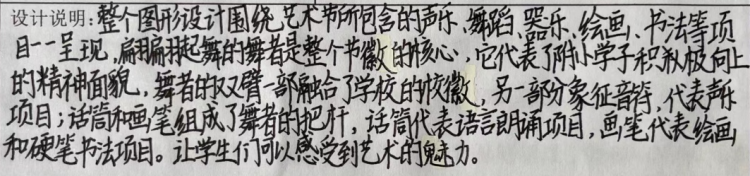 设计说明:整个图形设计围绕艺术节所包含的声乐、舞蹈、器乐、绘画、书法等项
目一一呈现,翩翩起舞的舞者是整个节徽的核心,它代表了附小学子积极向上
的精神面貌,舞者的双臂一部融合了学校的校徽,另一部分象征音符,代表声乐
项目;话筒和画笔组成了舞者的把杆,话筒代表语言朗诵项目,画笔代表绘画
和硬笔书法项目。让学生们可以感受到艺术的魅力。